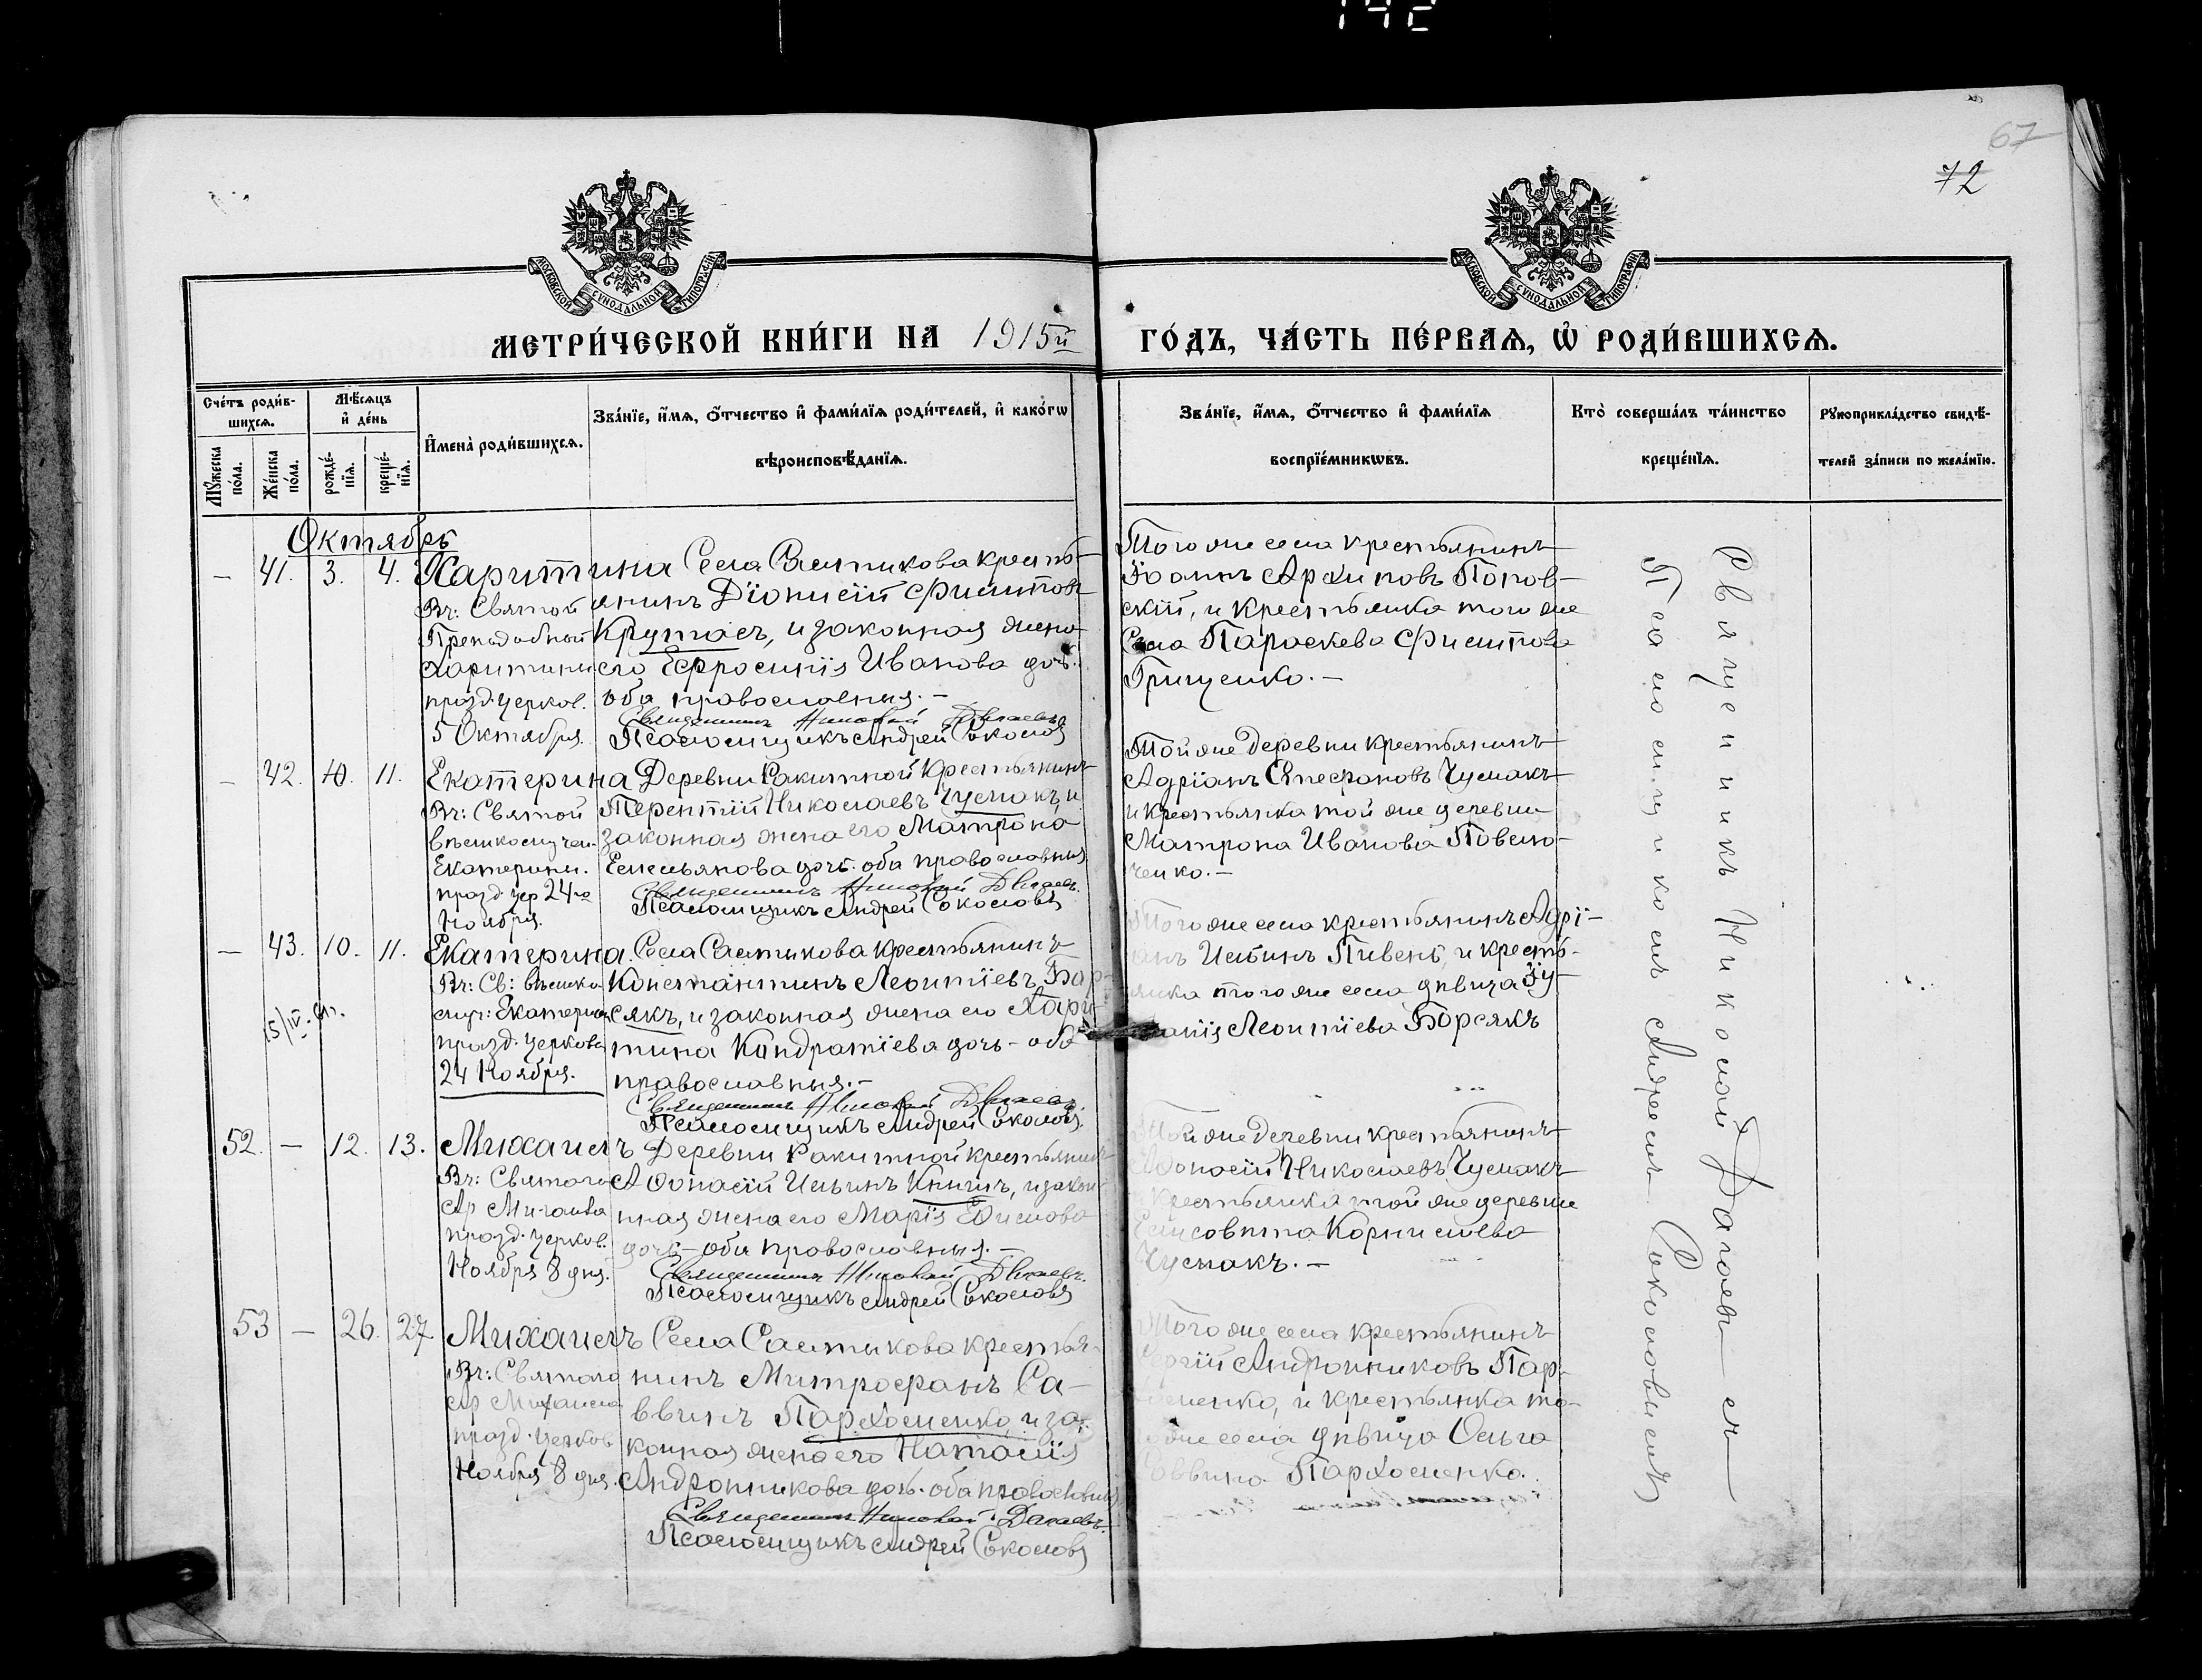 142
67
72
МОСКОВСКОЙ СУНОДАЛЬНОЙ ТИПОГРАФІИ
МОСКОВСКОЙ СУНОДАЛЬНОЙ ТИПОГРАФІИ
МЕТРИ́ЧЕСКОЙ КНИ́ГИ НА 1915й ГО́ДЪ, ЧА́СТЬ ПЕ́РВАѦ, Ѡ҆ РОДИ́ВШИХСѦ.
Сче́тъ роди́в-
шихсѧ.
Мꙋ́жеска по́ла.
Же́нска по́ла.
Мѣ́сѧцъ
и҆ де́нь
рожде́-
нїѧ.
креще́-
нїѧ.
И҆мена̀ роди́вшихсѧ.
Зва́нїе, и҆́мѧ, ѻ҆́тчество и҆ фами́лїѧ роди́телей, и҆ како́гѡ
вѣроисповѣ́данїѧ.
Зва́нїе, и҆́мѧ, ѻ҆́тчество и҆ фами́лїѧ
воспрїе́мникѡвъ.
Кто̀ соверша́лъ та́инство
креще́нїѧ.
Рꙋкоприкла́дство свидѣ́-
телей за́писи по жела́нїю.
Октябрь
— 41. 3. 4. Харитина
Вч: Святой
Преподобный
Харитины
празд. церков.
5 Октября.
Села Салтикова кресть-
янинъ Діонисій Филитовъ
Крутасъ, и законная жена
его Ефросинія Иванова дочь.
оба православныя. —
Священникъ Николай Дагаевъ
Псаломщикъ Андрей Соколовъ
Того же села крестьянинъ
Іоаннъ Архиповъ Попов-
скій, и крестьянка того же
Села Параскева Филитова
Грищенко. —
— 42. 10. 11. Екатерина
Вч: Святой
великомучен.
Екатерины.
празд. цер 24го
Ноября.
Деревни Ракитной крестьянинъ
Терентій Николаевъ Чумакъ, и
законная жена его Матрона
Емельянова дочь. оба православныя
Священникъ Николай Дагаевъ.
Псаломщикъ Андрей Соколовъ
Той же деревни крестьянинъ
Адріанъ Стефановъ Чумакъ
и крестьянка той же деревни
Матрона Иванова Повело-
ченко. —
— 43. 10. 11. Екатерина.
Вч: Св: велико
муч: Екатерин
празд. церкова
24 Ноября.
15/IV.
Села Салтыкова крестьянинъ
Константинъ Леонтіевъ Бор-
сякъ, и законная жена его Хари-
тина Кондратіева дочь - оба
православныя. —
Священникъ Николай Дагаевъ
Псаломщикъ Андрей Соколовъ
Того же села крестьянинъ Адрі-
анъ Ильинъ Пивень, и кресть-
янка того же села дѣвица Іу-
ліанія Леонтіева Борсякъ
52. — 12. 13. Михаилъ
Вч: Святаго
Ар Михаила
празд. церков.
Ноября 8 дня.
Деревни Ракитной крестьянинъ
Афонасій Ильинъ Книшъ, и закон
ная жена его Марія Ефимова
дочь - оба православныя. —
Священникъ Николай Дагаевъ.
Псаломщикъ Андрей Соколовъ
Той же деревни крестьянинъ
Афонасій Николаевъ Чумакъ
крестьянка той же деревни
Елисовета Корнилева
Чумакъ. —
53 — 26. 27. Михаилъ
Вч: Святаго
Ар Михаила
празд. церков
Ноября 8 дня.
Села Салтыкова крестья-
нинъ Митрофанъ Са-
ввинъ Пархоменко, и за-
конная жена его Наталія
Андронникова дочь. оба православныя
Священникъ Николай Дагаевъ.
Псаломщикъ Андрей Соколовъ
Того же села крестьянинъ
Сергій Андронниковъ Пар-
хоменко, и крестьянка то-
го же села дѣвица Ольга
Саввина Пархоменко.
Священникъ Николай Дагаевъ съ
Псаломщикомъ Андреемъ Соколовымъ